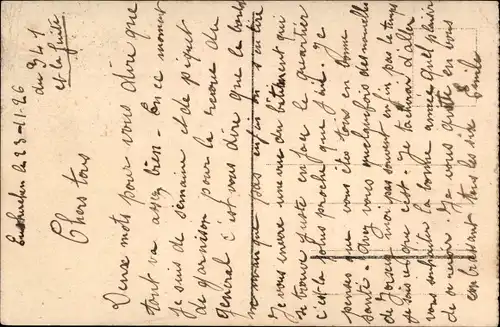 le 23-11-26
du 341
et la suite
Chers tous
Deux mots pour vous dire que
tout va assez bien. En ce moment
je suis de semaine et de piquet
de garnison pour la revue du
général c'est vous dire que le boulot
ne manque pas enfin on s'en tire
Je vous envoie une vue du bâtiment qui
se trouve juste en face le quartier
c'est la plus proche que j'ai. Je
pense que vous êtes tous en bonne
santé. Avez vous quelquefois des nouvelles
de moi pas souvent enfin par le temps
je sais ce que c'est. Je tacherai d'aller
vous souhaiter la bonne année quel plaisir
de se revoir. Je vous quitte en vous
embrassant tous les six
Emile